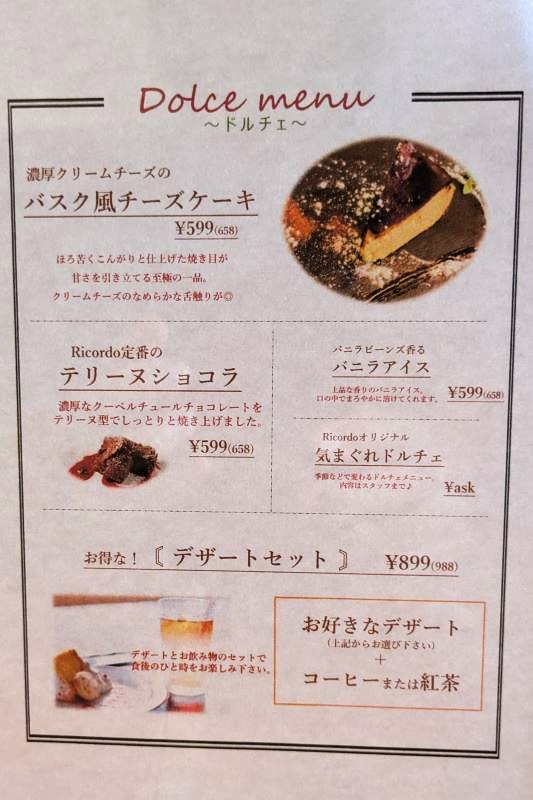 Dolce menu
〜ドルチェ〜
濃厚クリームチーズの
バスク風チーズケーキ
¥599(658)
ほろ苦くこんがりと仕上げた焼き目が
甘さを引き立てる至極の一品。
クリームチーズのなめらかな舌触りが◎
Ricordo定番の
テリーヌショコラ
濃厚なクーベルチュールチョコレートを
テリーヌ型でしっとりと焼き上げました。
¥599(658)
バニラビーンズ香る
バニラアイス
上品な香りのバニラアイス。
口の中でまろやかに溶けてくれます。
¥599(658)
Ricordoオリジナル
気まぐれドルチェ
季節などで変わるドルチェメニュー。
内容はスタッフまで♪
¥ask
お得な！〘 デザートセット 〙 ¥899(988)
デザートとお飲み物のセットで
食後のひと時をお楽しみ下さい。
お好きなデザート
（上記からお選び下さい）
＋
コーヒーまたは紅茶